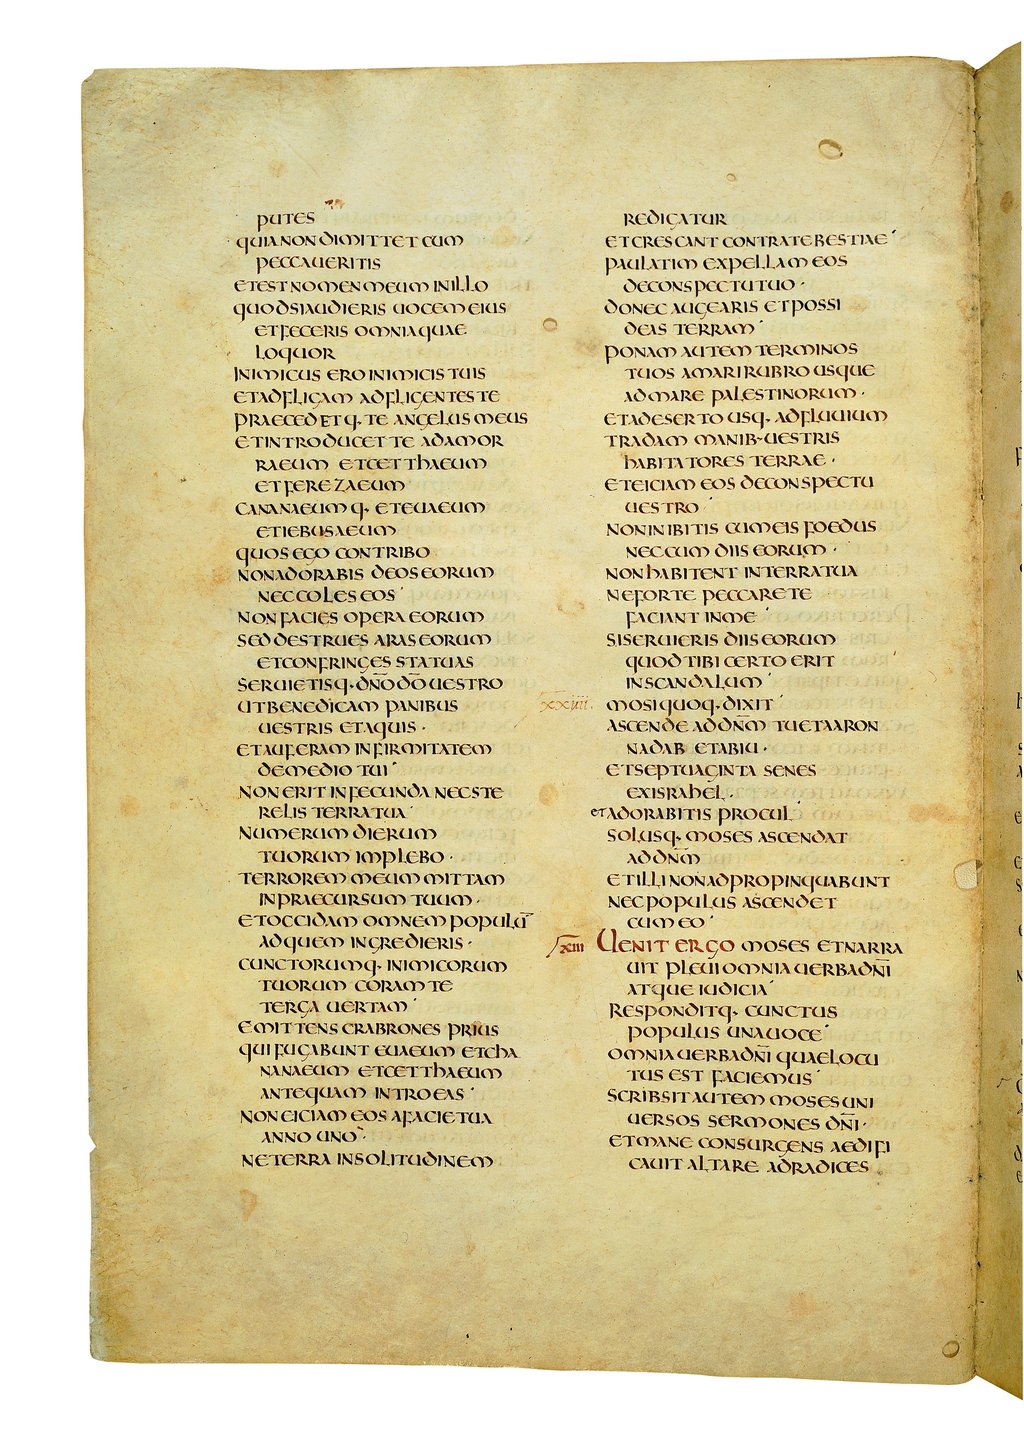 PUTES
QUIA NON DIMITTET CUM
PECCAVERITIS
ET EST NOMEN MEUM IN ILLO
QUOD SI AUDIERIS UOCEM EIUS
ET FECERIS OMNIA QUAE
LOQUOR
INIMICUS ERO INIMICIS TUIS
ET ADFLIGAM ADFLIGENTES TE
PRAECEDETQ· TE ANGELUS MEUS
ET INTRODUCET TE AD AMOR
RAEUM ET CETTHAEUM
ET FEREZAEUM
CANANAEUMQ· ET EUAEUM
ET IEBUSAEUM
QUOS EGO CONTRIBO
NON ADORABIS DEOS EORUM
NEC COLES EOS
NON FACIES OPERA EORUM
SED DESTRUES ARAS EORUM
ET CONFRINGES STATUAS
SERUIETISQ· DN̄O DŌ UESTRO
UT BENEDICAM PANIBUS
UESTRIS ET AQUIS·
ET AUFERAM INFIRMITATEM
DE MEDIO TUI
NON ERIT INFECUNDA NEC STE
RELIS TERRA TUA
NUMERUM DIERUM
TUORUM IMPLEBO·
TERROREM MEUM MITTAM
IN PRAECURSUM TUUM·
ET OCCIDAM OMNEM POPULŪ
AD QUEM INGREDIERIS·
CUNCTORUMQ· INIMICORUM
TUORUM CORAM TE
TERGA UERTAM
EMITTENS CRABRONES PRIUS
QUI FUGABUNT EUAEUM ET CHA
NANAEUM ET CETTHAEUM
ANTEQUAM INTROEAS
NON EICIAM EOS A FACIE TUA
ANNO UNO
NE TERRA IN SOLITUDINEM
REDIGATUR
ET CRESCANT CONTRA TE BESTIAE
PAULATIM EXPELLAM EOS
DE CONSPECTU TUO·
DONEC AUGEARIS ET POSSI
DEAS TERRAM
PONAM AUTEM TERMINOS
TUOS A MARI RUBRO USQUE
AD MARE PALESTINORUM·
ET A DESERTO USQ· AD FLUUIUM
TRADAM MANIB· UESTRIS
HABITATORES TERRAE·
ET EICIAM EOS DE CONSPECTU
UESTRO
NON INIBITIS CUM EIS FOEDUS
NEC CUM DIIS EORUM·
NON HABITENT IN TERRA TUA
NE FORTE PECCARE TE
FACIANT IN ME
SI SERUIERIS DIIS EORUM
QUOD TIBI CERTO ERIT
IN SCANDALUM
xxiiii. MOSI QUOQ· DIXIT
ASCENDE AD DN̄M TU ET AARON
NADAB ET ABIU·
ET SEPTUAGINTA SENES
EX ISRAHEL·
ET ADORABITIS PROCUL
SOLUSQ· MOSES ASCENDAT
AD DN̄M
ET ILLI NON ADPROPINQUABUNT
NEC POPULUS ASCENDET
CUM EO
lxiii UENIT ERGO MOSES ET NARRA
UIT PLEUI OMNIA UERBA DN̄I
ATQUE IUDICIA
RESPONDITQ· CUNCTUS
POPULUS UNA UOCE
OMNIA UERBA DN̄I QUAE LOCU
TUS EST FACIEMUS
SCRIBSIT AUTEM MOSES UNI
UERSOS SERMONES DN̄I·
ET MANE CONSURGENS AEDIFI
CAUIT ALTARE AD RADICES